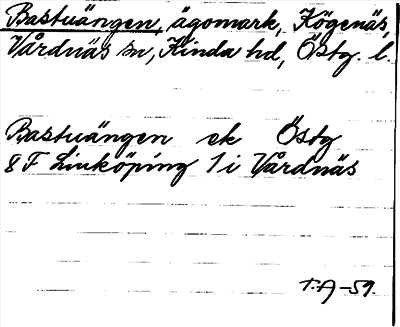 Bastuängen, ägomark, Högenäs,
Vårdnäs sn, Kinda hd, Östg. l.
Bastuängen ek Östg
8 F Linköping 1 i Vårdnäs
T.A-59.